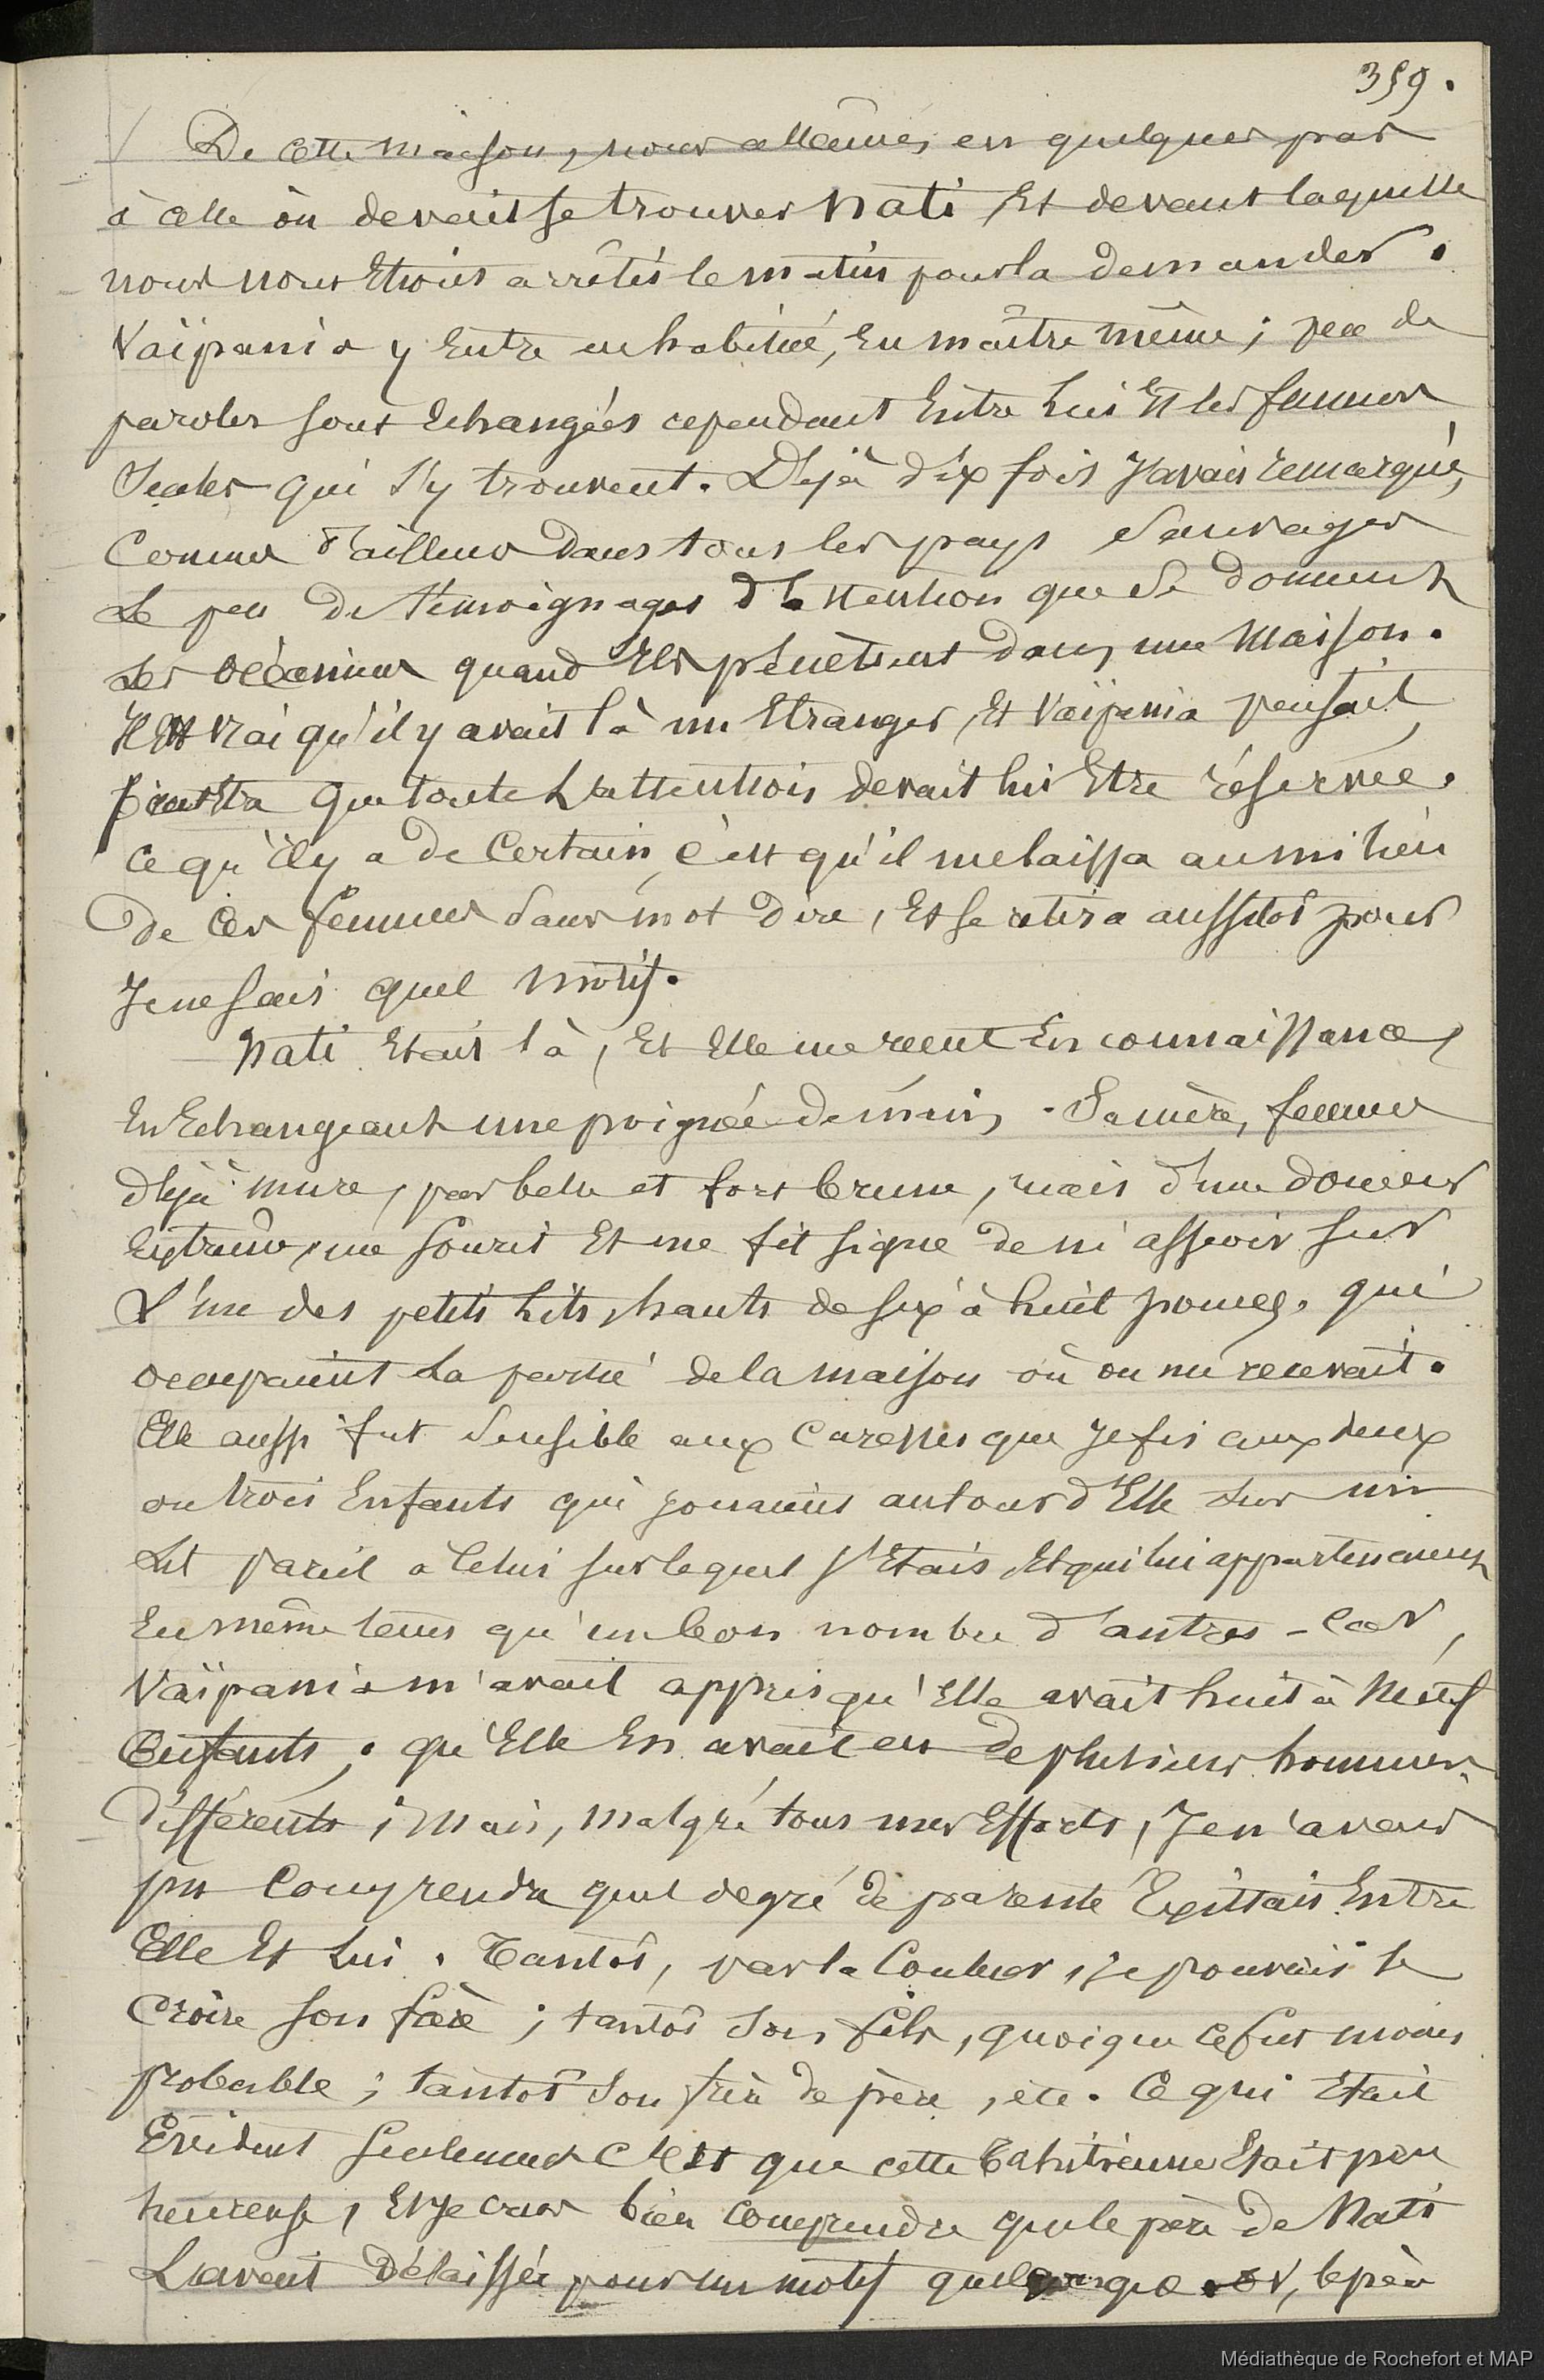 359.
De cette maison, nous allâmes en quelques pas
à celle où devait se trouver Nati et devant laquelle
nous nous étions arrêtés le matin pour la demander.
Vaïpania y entre en habitué, en maître même ; peu de
paroles sont échangées cependant entre lui et les femmes
seules qui s'y trouvent. Déjà dix fois j'avais remarqué,
comme d'ailleurs dans tous les pays sauvages
le peu de témoignages d'attention que se donnent
les océaniens quand ils pénètrent dans une maison.
Il est vrai qu'il y avait là un étranger, et Vaïpania pensait
peut être que toute l'attention devait lui être réservée.
Ce qu'il y a de certain, c'est qu'il me laissa au milieu
de ces femmes sans mot dire, et se retira aussitôt pour
je ne sais quel motif.
Nati était là, et elle me reçut en connaissance,
en échangeant une poignée de mains. Sa mère, femme
déjà mure, pas belle et fort brune, mais d'une douceur
extrême, me sourit et me fit signe de m'asseoir sur
l'un des petits lits, hauts de six à huit pouces, qui
occupaient la partie de la maison où on me recevait.
Elle aussi fut sensible aux caresses que je fis aux deux
ou trois enfants qui jouaient autour d'elle sur un
lit pareil à celui sur lequel j'étais et qui lui appartenaient
en même tems qu'un bon nombre d'autres - car,
Vaïpania m'avait appris qu'elle avait huit à neuf
enfants ; qu'elle en avait eu de plusieurs hommes
différents ; mais, malgré tous mes efforts, je n'avais
pu comprendre quel degré de parenté existait entre
elle et lui. Tantôt, par la couleur, je pouvais le
croire son frère ; tantôt son fils, quoique ce fut moins
probable ; tantôt son frère de père, etc. Ce qui était
évident seulement c'est que cette Tahitienne était peu
heureuse, et je crus bien comprendre que le père de Nati
l'avait délaissée pour un motif quelconque. or, le père
Médiathèque de Rochefort et MAP